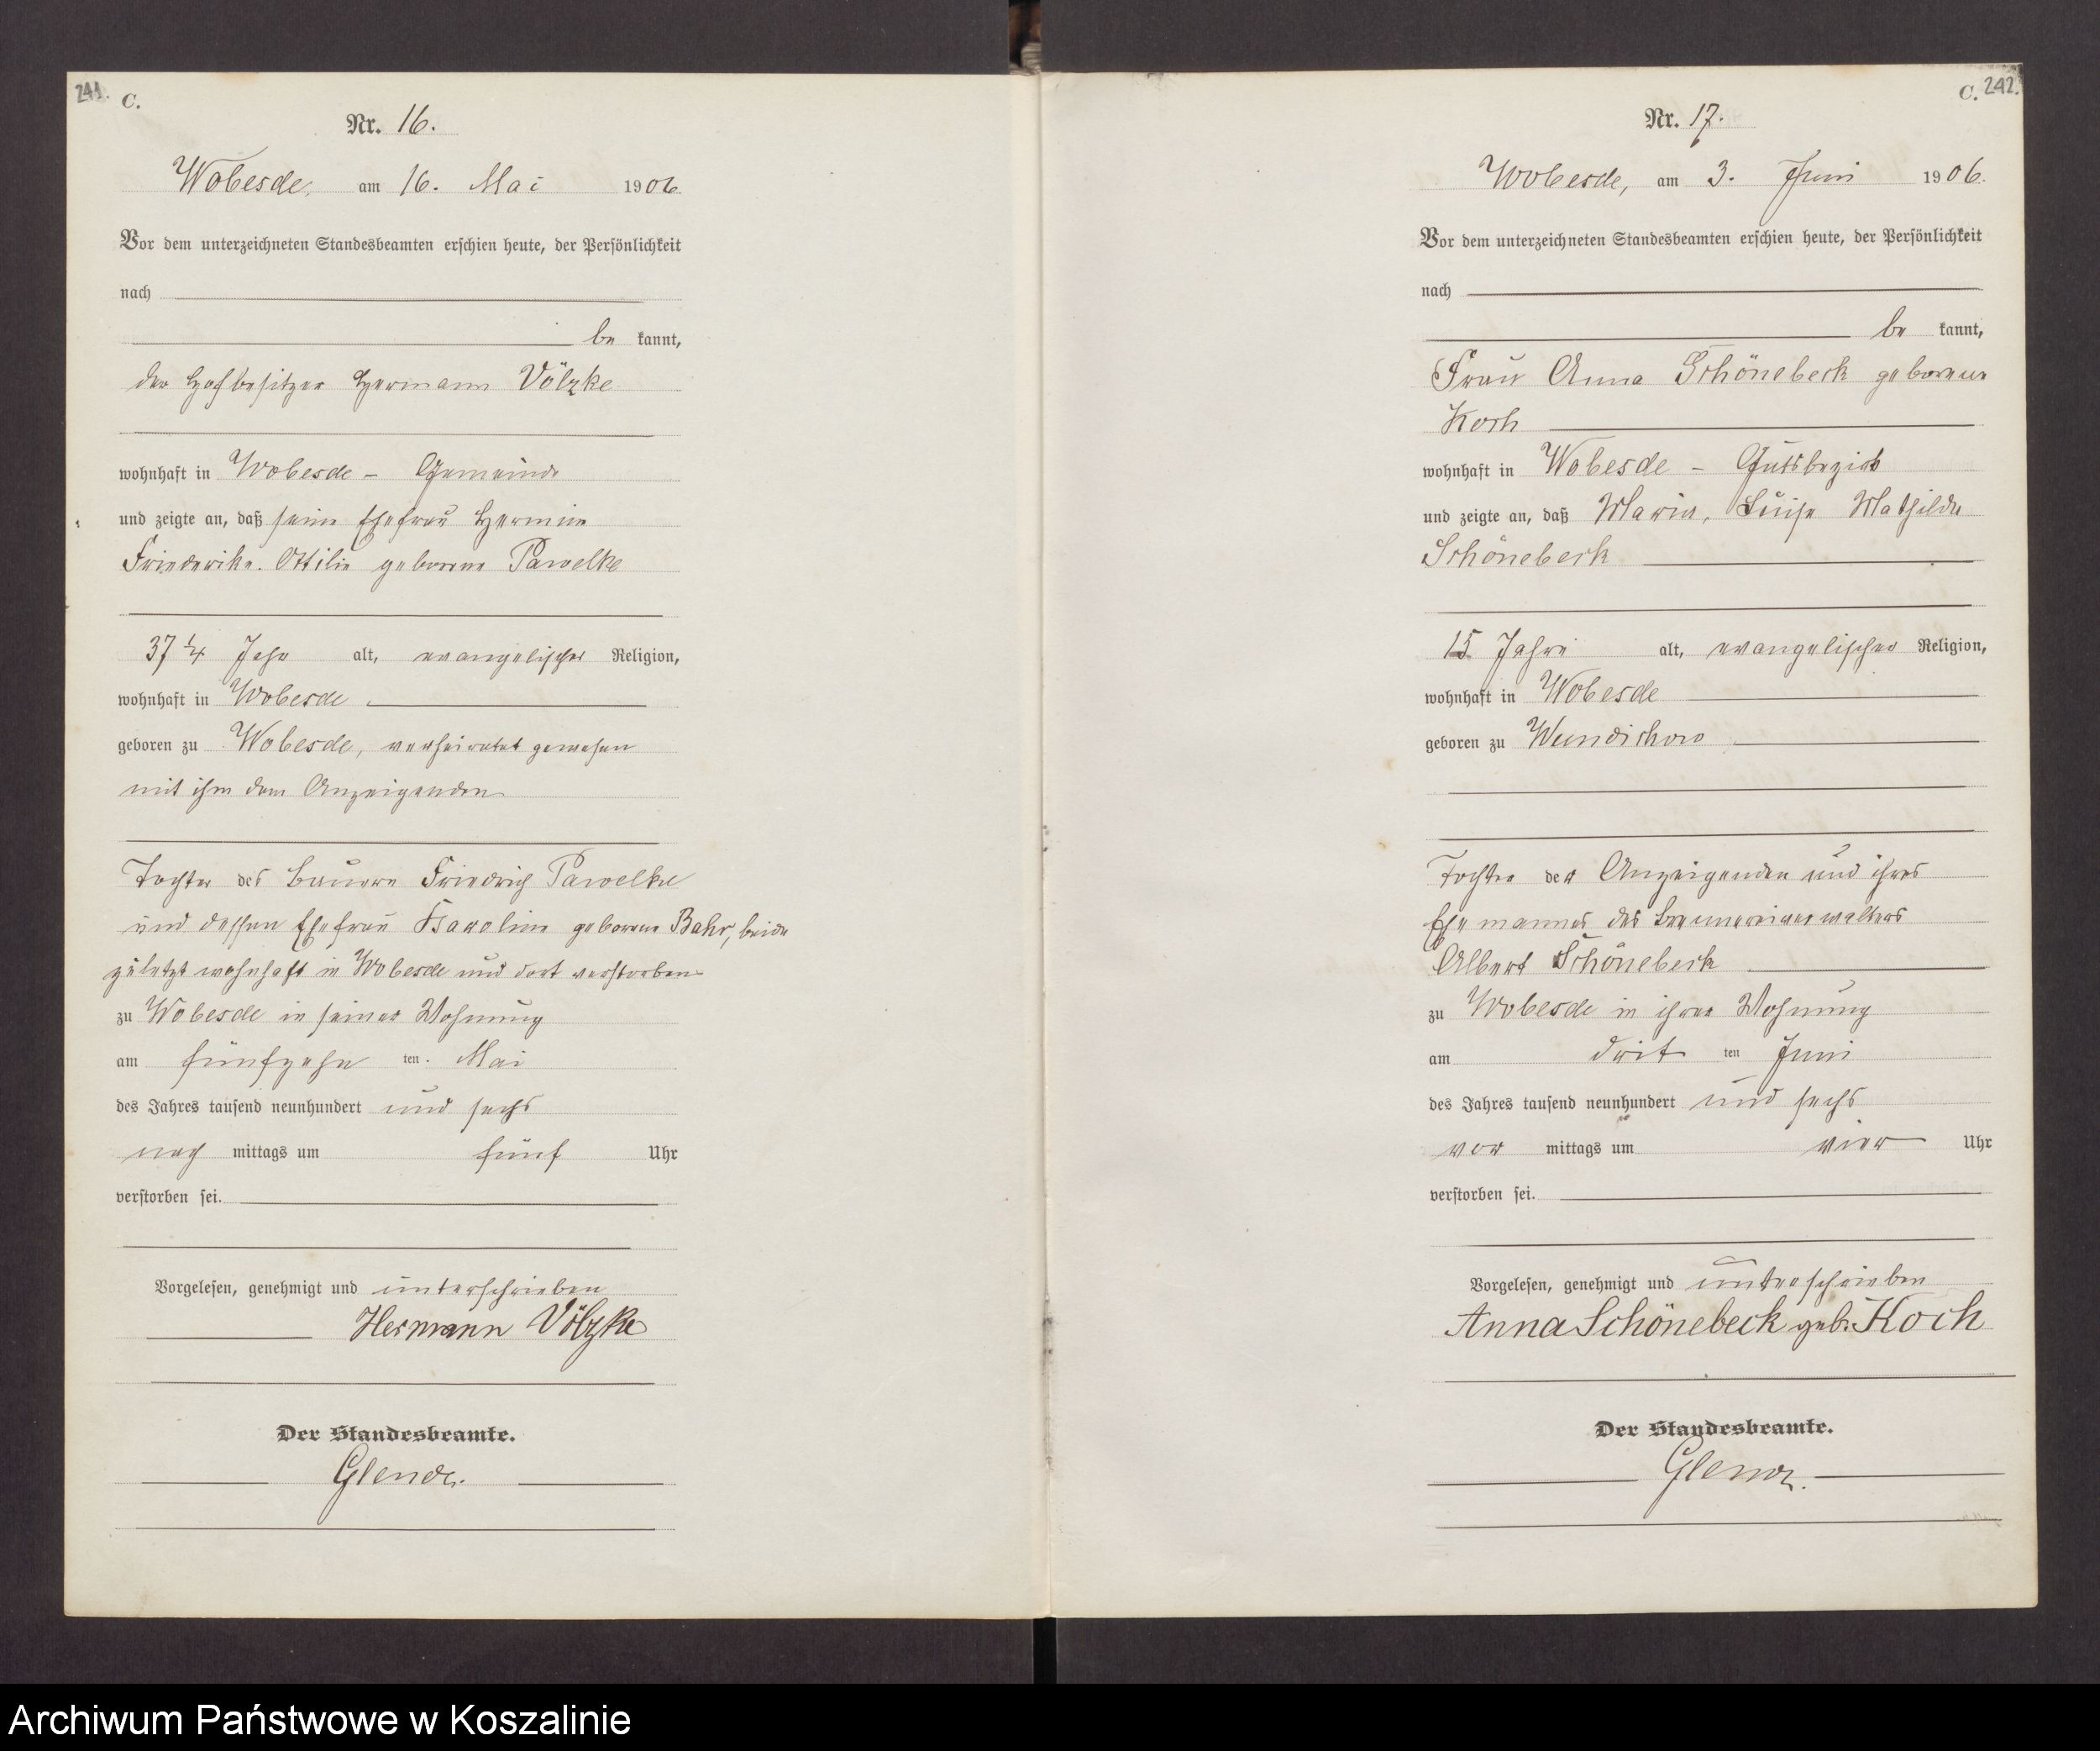 241.
C.
Nr. 16.
Wobesde, am 16. Mai 1906
Vor dem unterzeichneten Standesbeamten erschien heute, der Persönlichkeit
nach
be kannt,
der Hofbesitzer Hermann Völzke
wohnhaft in Wobesde - Gemeinde
und zeigte an, daß seine Ehefrau Hermine
Friederike Ottilie geborene Pawelke
37 1/4 Jahr alt, evangelischer Religion,
wohnhaft in Wobesde
geboren zu Wobesde, verheiratet gewesen
mit ihm dem Anzeigenden
Tochter des Bauern Friedrich Pawelke
und dessen Ehefrau Karoline geborene Bahr, beide
zuletzt wohnhaft in Wobesde und dort verstorben
zu Wobesde in seiner Wohnung
am fünfzehn ten. Mai
des Jahres tausend neunhundert und sechs
nach mittags um fünf Uhr
verstorben sei.
Vorgelesen, genehmigt und unterschrieben
Hermann Völzke
Der Standesbeamte.
Glende.
C. 242.
Nr. 17.
Wobesde, am 3. Juni 1906.
Vor dem unterzeichneten Standesbeamten erschien heute, der Persönlichkeit
nach
be kannt,
Frau Anna Schönebeck geborene
Koch
wohnhaft in Wobesde - Gutsbezirk
und zeigte an, daß Marie, Luise Mathilde
Schönebeck
15 Jahre alt, evangelischer Religion,
wohnhaft in Wobesde
geboren zu Wundichow
Tochter der Anzeigenden und ihres
Ehemannes des Brennereiverwalters
Albert Schönebeck
zu Wobesde in ihrer Wohnung
am drit ten Juni
des Jahres tausend neunhundert und sechs
vor mittags um vier Uhr
verstorben sei.
Vorgelesen, genehmigt und unterschrieben
Anna Schönebeck geb. Koch
Der Standesbeamte.
Glende.
Archiwum Państwowe w Koszalinie